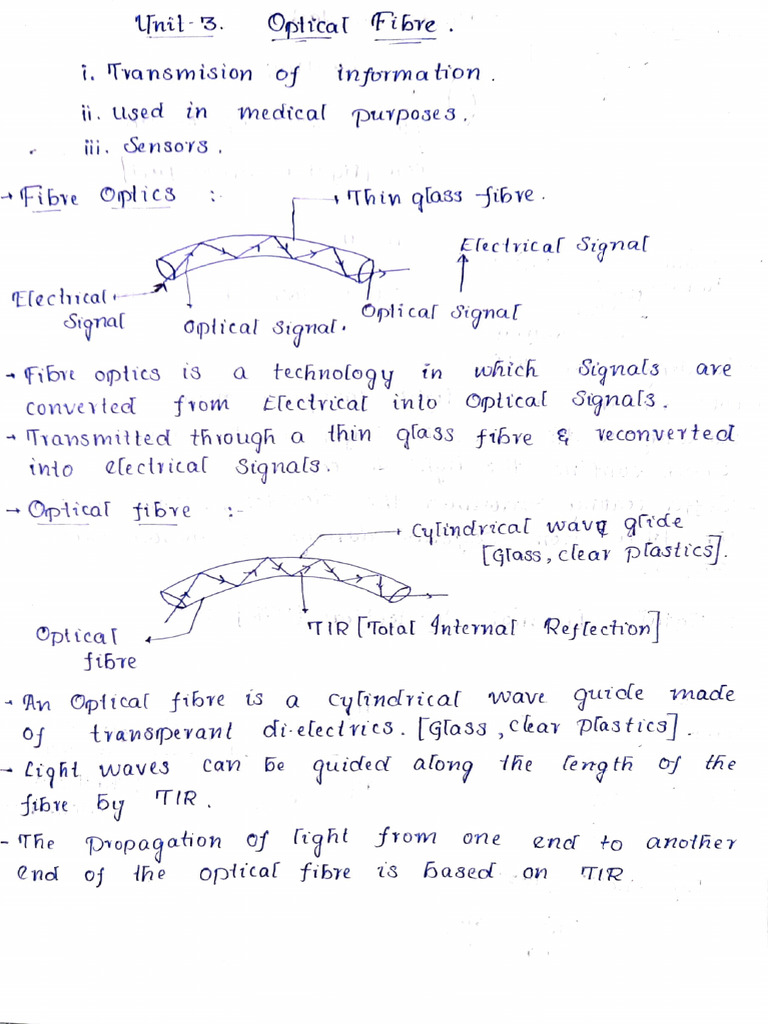 Unit-3. Optical Fibre.
i. Transmision of information.
ii. used in medical purposes.
iii. Sensors.
→ Fibre Optics :-
→ Thin glass fibre.
Electrical Signal
Electrical
Signal
Optical Signal.
Optical Signal
→ Fibre optics is a technology in which Signals are
converted from Electrical into Optical Signals.
→ Transmitted through a thin glass fibre & reconverted
into electrical Signals.
→ Optical fibre :-
→ Cylindrical wave gride
[Glass, clear plastics].
Optical
fibre
TIR [Total Internal Reflection]
→ An Optical fibre is a cylindrical wave guide made
of transperant di-electrics. [Glass, clear plastics].
→ Light waves can be guided along the length of the
fibre by TIR.
- The propagation of light from one end to another
end of the optical fibre is based on TIR